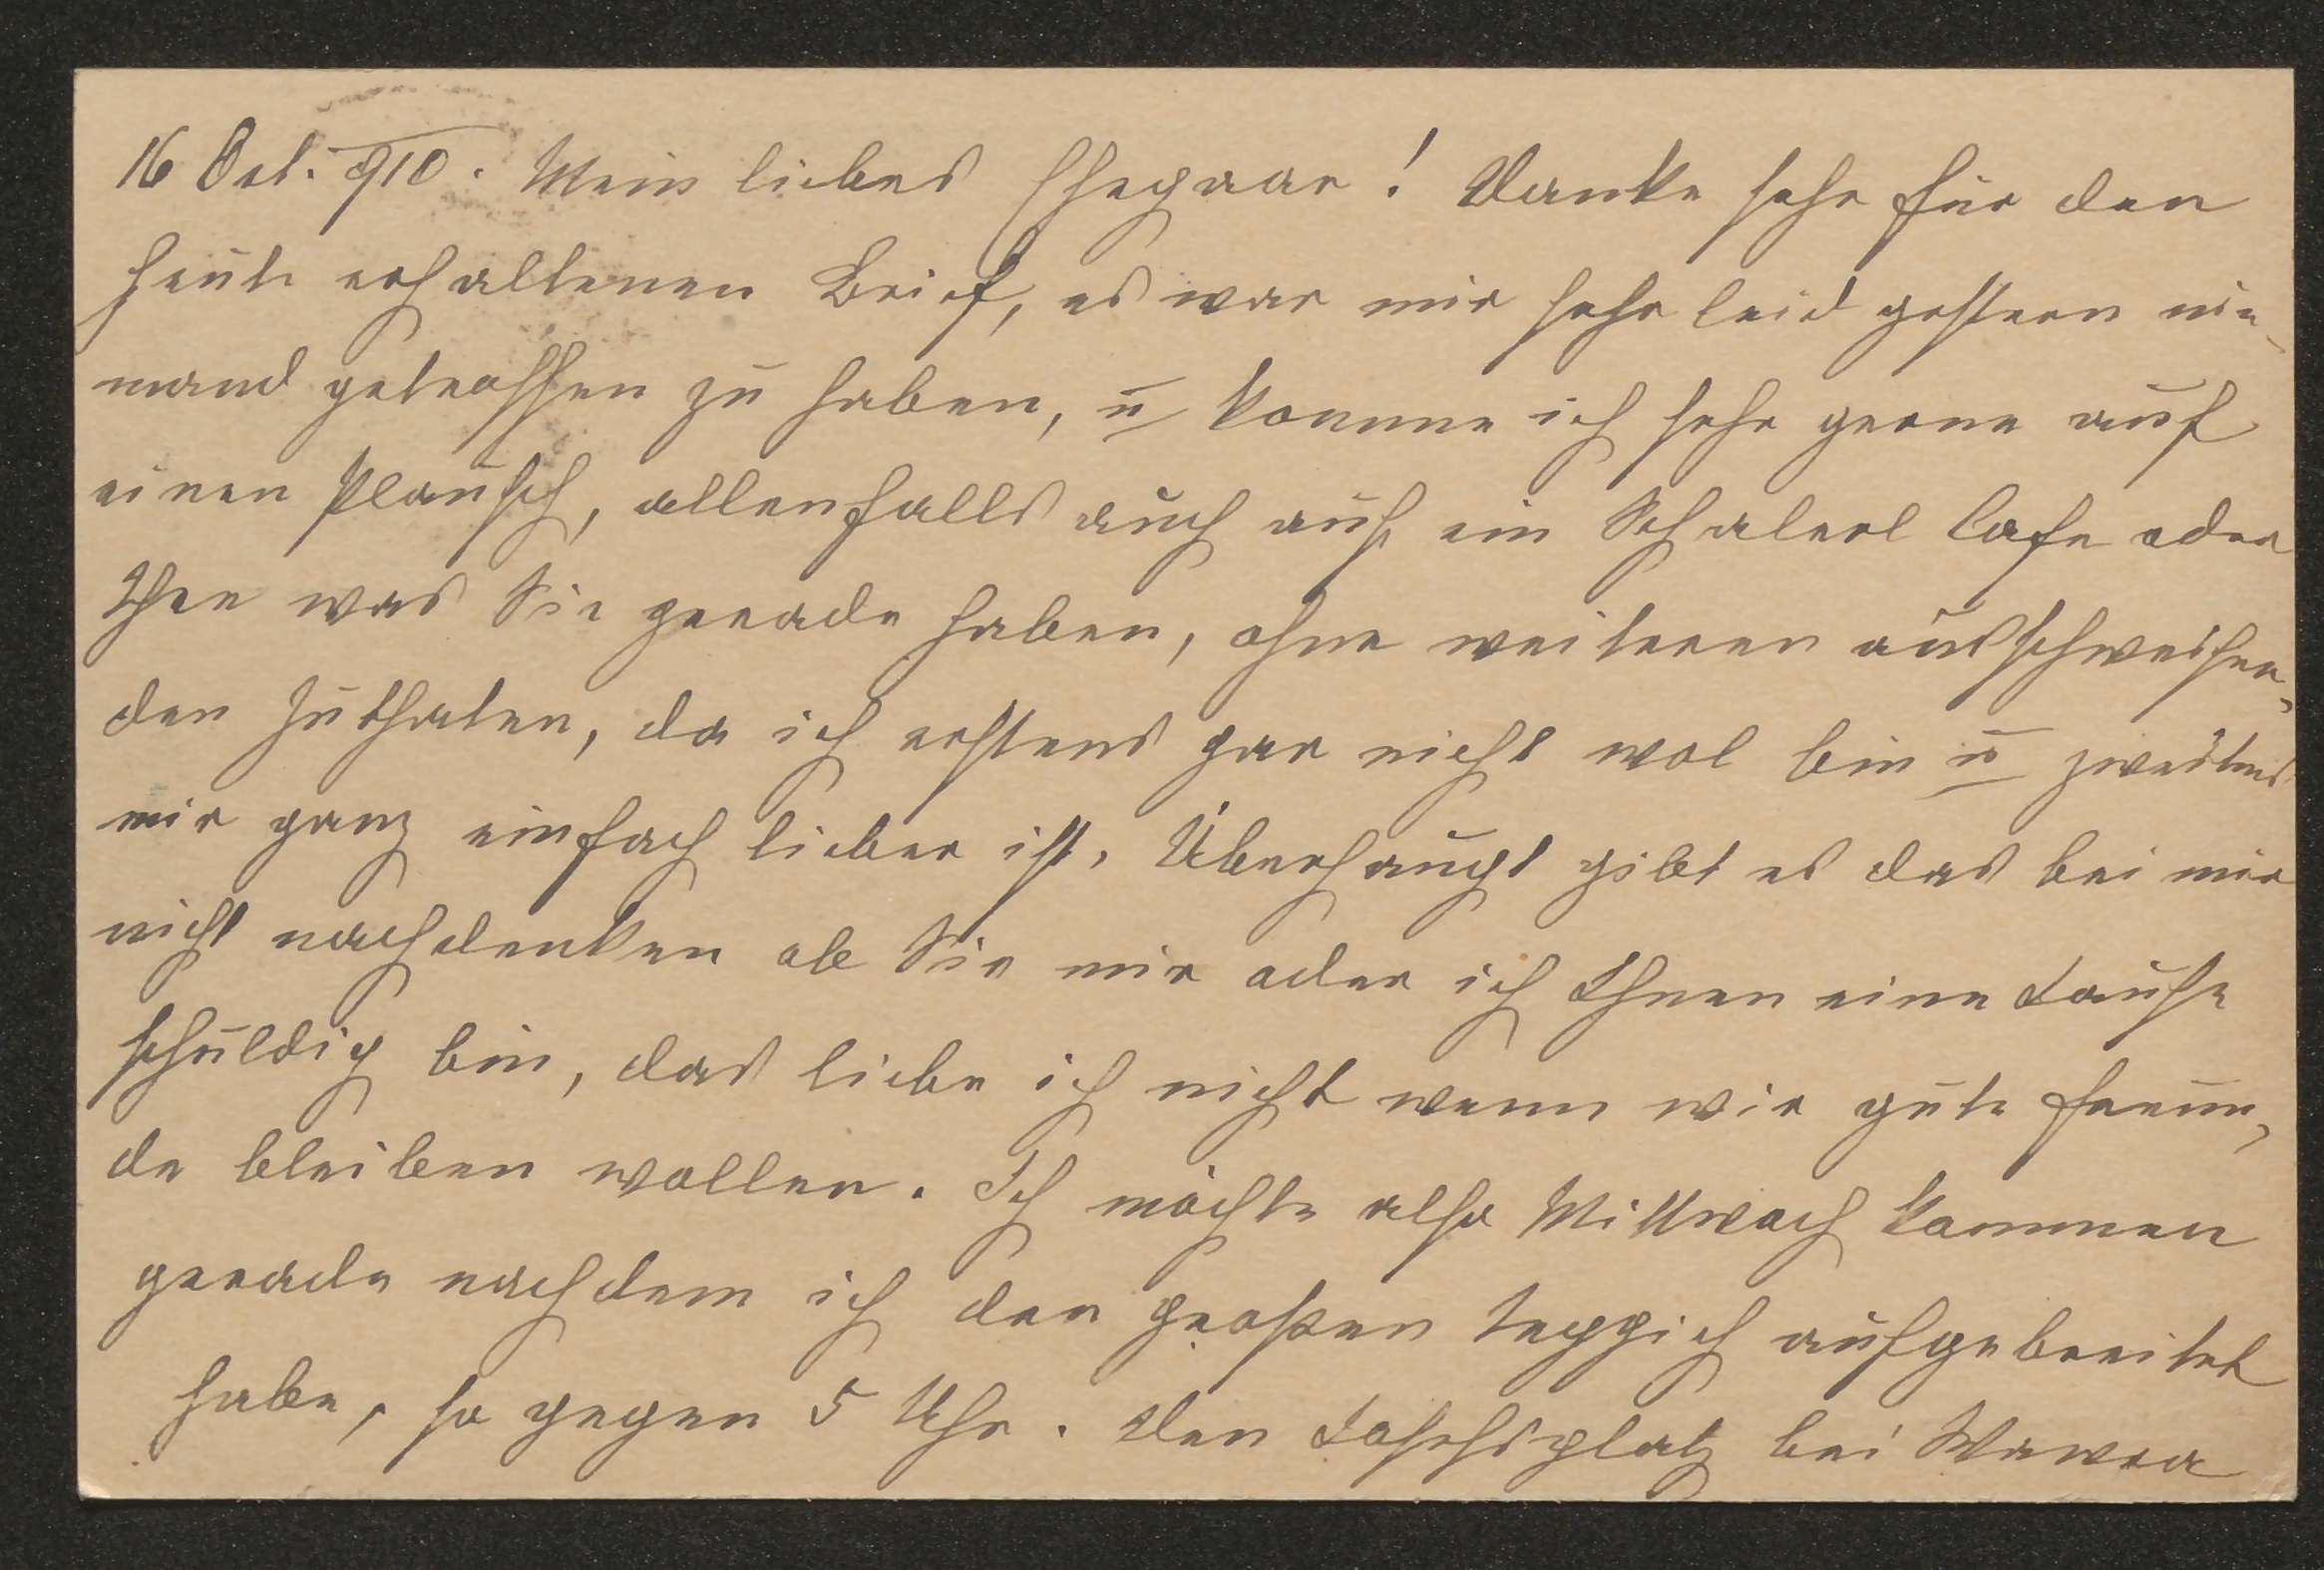 16 Oct. 910. Mein liebes Ehepaar! Danke sehr für den
heute erhaltenen Brief, es war mir sehr leid gestern nie-
mand getroffen zu haben, u komme ich sehr gerne auf
einen Plausch, allenfalls auch auf ein Schalerl Cafe oder
Thee was Sie gerade haben, ohne weiteren ausschweifen-
den Zuthaten, da ich erstens gar nicht wol bin u zweitens
mir ganz einfach lieber ist. Überhaupt gibt es das bei mir
nicht nachdenken ob Sie mir oder ich Ihnen eine Jause
schuldig bin, das liebe ich nicht wenn wir gute Freun-
de bleiben wollen. Ich möchte also Mittwoch kommen
gerade nachdem ich den großen Teppich aufgebreitet
habe, so gegen 5 Uhr. Den Josefsplatz bei Wawra